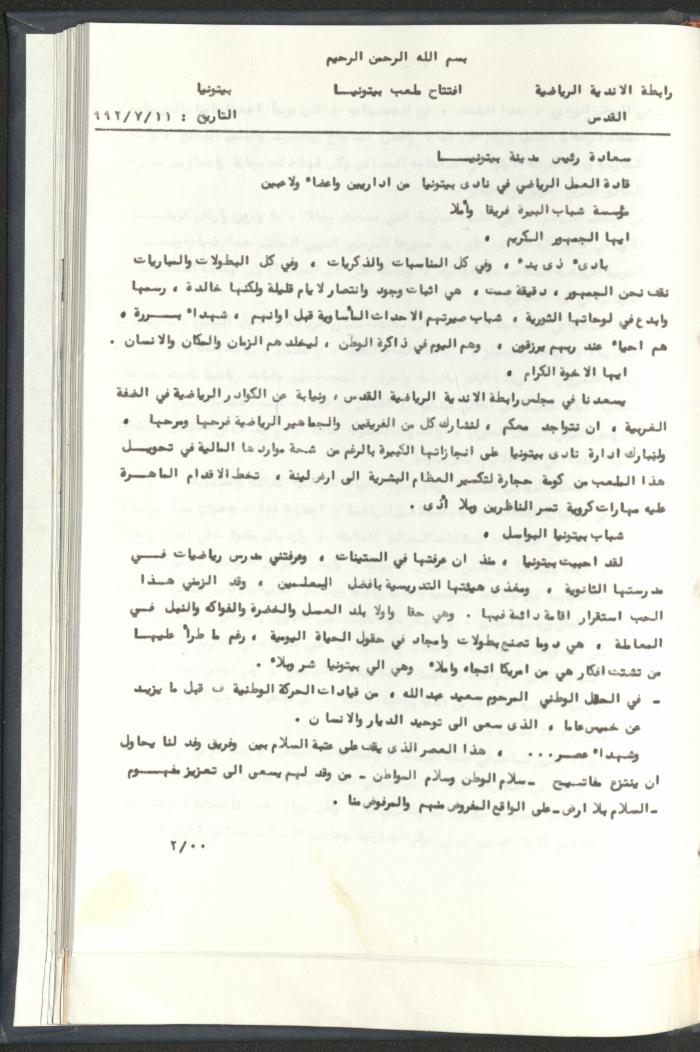 بسم الله الرحمن الرحيم
رابطة الاندية الرياضية افتتاح ملعب بيتونيـــا بيتونيا
القدس التاريخ : ٩٩٢/٧/١١
سعادة رئيس مدينة بيتونيـــا
قادة العمل الرياضي في نادى بيتونيا من اداريين واعضاء ولاعبين
مؤسسة شباب البيرة فريقا وأملا
ايها الجمهور الكريم ،
بادىء ذى بدء ، وفي كل المناسبات والذكريات ، وفي كل البطولات والمباريات
نقف نحن الجمهور ، دقيقة صمت ، هي اثبات وجود وانتصار لايام قليلة ولكنها خالدة ، رسمها
وابدع في لوحاتها الثورية ، شباب صيرتهم الاحداث المأساوية قبل اوانهم ، شهداء بــررة ،
هم احياء عند ربهم يرزقون ، وهم اليوم في ذاكرة الوطن ، ليخلدهم الزمان والمكان والانسان .
ايها الاخوة الكرام ،
يسعدنا في مجلس رابطة الاندية الرياضية القدس ، ونيابة عن الكوادر الرياضية في الضفة
الغربية ، ان نتواجد معكم ، لنشارك كل من الفريقين والجماهير الرياضية فرحها ومرحها ،
ولنبارك ادارة نادى بيتونيا على انجازاتها الكبيرة بالرغم من شحة مواردها المالية في تحويــل
هذا الملعب من كومة حجارة لتكسير العظام البشرية الى ارض لينة ، تخط الاقدام الماهــرة
عليه مبارات كروية تسر الناظرين وبلا أذى .
شباب بيتونيا البواسل ،
لقد احببت بيتونيا ، منذ ان عرفتها في الستينات ، وعرفتني مدرس رياضيات فـــي
مدرستها الثانوية ، ومغذى هيئتها التدريسية بافضل المعلمين ، وقد الزمني هــذا
الحب استقرار اقامة دائمة فيها . وهي حقا واولا بلد العمل والخضرة والفواكه والنبل فــي
المعاملة ، هي دوما تصنع بطولات وامجاد في حقول الحياة اليومية ، رغم ما طرأ عليهــا
من تشتت افكار هي من امريكا اتجاه واملاء وهي الي بيتونيا شر وبلاء .
ـ في الحقل الوطني المرحوم سعيد عبدالله ، من قيادات الحركة الوطنية قبل ما يزيـد
عن خمسين عاما ، الذى سعى الى توحيد الديار والانسان .
وشهداء عصر... ، هذا العصر الذى يقف على عتبة السلام بين وفريق وفد لنا يحاول
ان ينتزع مفاتيـح ـ سلام الوطن وسلام المواطن ـ من وفد لهم يسعى الى تعزيز مفهــوم
ـ السلام بلا ارض ـ على الواقع المفروض منهم والمرفوض منا .
٢/٠٠